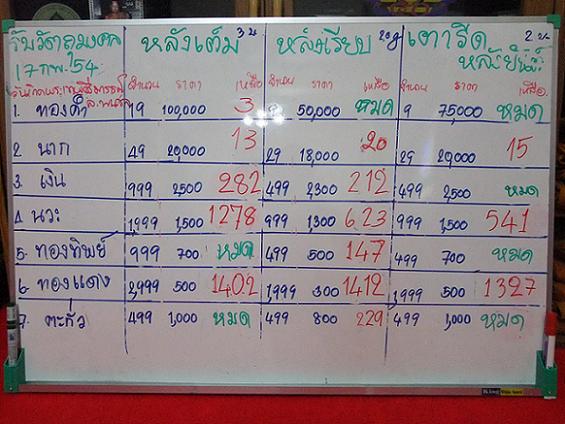 วันวัตถุมงคล หลังเต็ม 3 น หลังเรียบ เตารีด 2 น.
17 กพ. 54 หลังยันต์
จำนวน ราคา เหลือ จำนวน ราคา เหลือ จำนวน ราคา เหลือ
1. ทองคำ 19 100,000 3 9 50,000 หมด 9 75,000 หมด
2 นาก 49 20,000 13 29 18,000 20 29 20,000 15
3. เงิน 999 2,500 282 499 2,300 212 499 2,500 หมด
4. นวะ 1,999 1,500 1278 999 1,300 623 999 1,500 541
5. ทองทิพย์ 999 700 หมด 499 500 147 499 700 หมด
6. ทองแดง 2,999 500 1402 1,999 300 1412 1,999 500 1327
7. ตะกั่ว 499 1,000 หมด 499 800 229 499 1,000 หมด